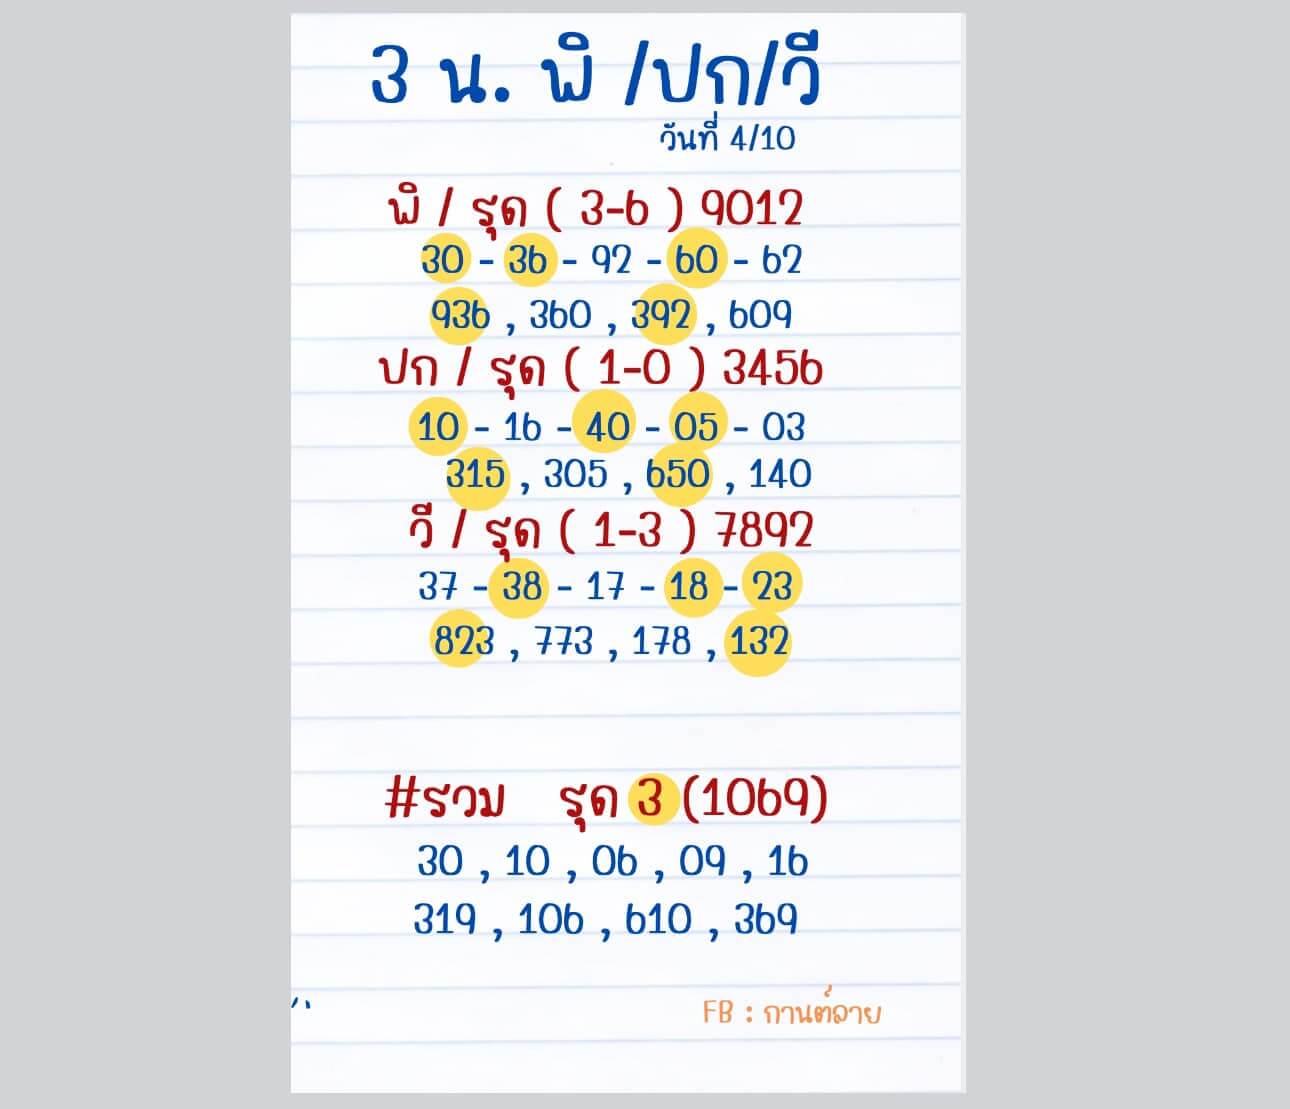 3 น. พิ /ปก/วี
วันที่ 4/10
พิ / รุด ( 3-6 ) 9012
30 - 36 - 92 - 60 - 62
936 , 360 , 392 , 609
ปก / รุด ( 1-0 ) 3456
10 - 16 - 40 - 05 - 03
315 , 305 , 650 , 140
วี / รุด ( 1-3 ) 7892
37 - 38 - 17 - 18 - 23
823 , 773 , 178 , 132
#รวม รุด 3 (1069)
30 , 10 , 06 , 09 , 16
319 , 106 , 610 , 369
FB : กานต์ลาย